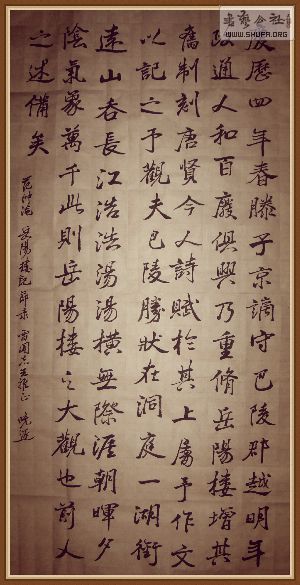 慶歷四年春滕子京謫守巴陵郡越明年
政通人和百廢俱興乃重脩岳陽樓增其
舊制刻唐賢今人詩賦於其上屬予作文
以記之予觀夫巴陵勝狀在洞庭一湖銜
遠山吞長江浩浩湯湯橫無際涯朝暉夕
陰氣象萬千此則岳陽樓之大觀也前人
之述備矣
范仲淹 岳陽樓記 節录
WWW.SHUFA.ORG